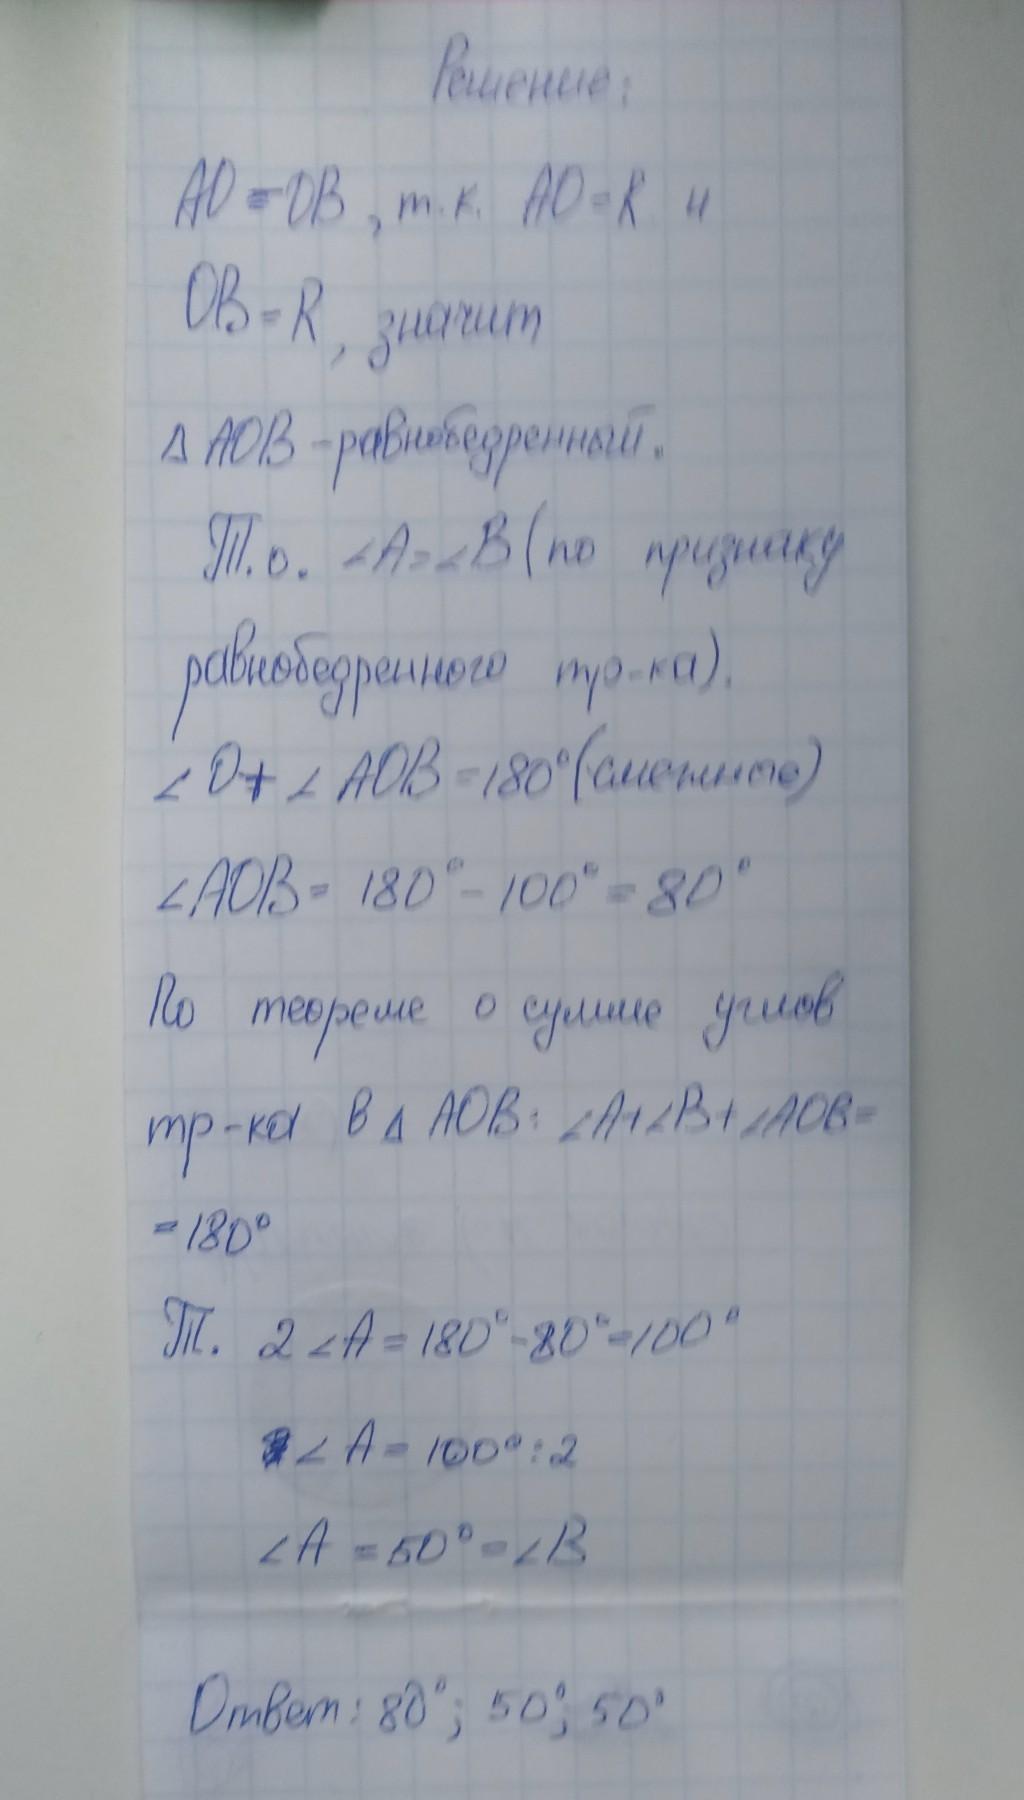 Решение:
AO=OB, т.к. AO=R и
OB=R, значит
△ AOB - равнобедренный.
Т.о. ∠A=∠B (по признаку
равнобедренного тр-ка).
∠O+∠AOB=180° (смежные)
∠AOB= 180°-100°=80°
По теореме о сумме углов
тр-ка в △ AOB: ∠A+∠B+∠AOB=
=180°
Т. 2∠A=180°-80°=100°
∠A=100°:2
∠A=50°=∠B
Ответ: 80°; 50°; 50°